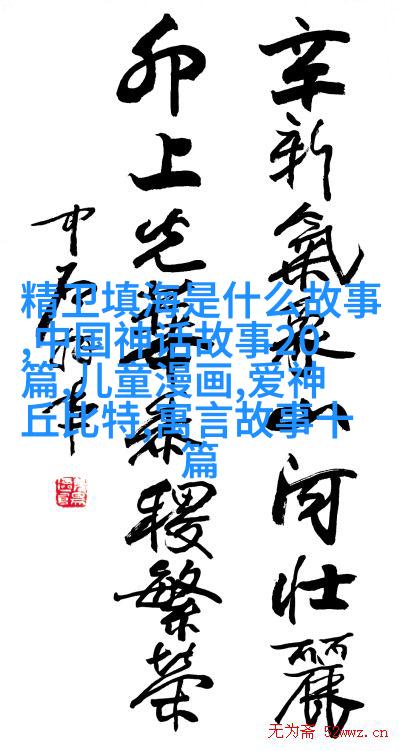 辛新氣象山河壯麗
卯上光華黍稷繁榮
中石
精卫填海是什么故事
,中国神话故事20
篇,儿童漫画,爱神
丘比特,寓言故事十
篇
无为斋 52wwz.cn